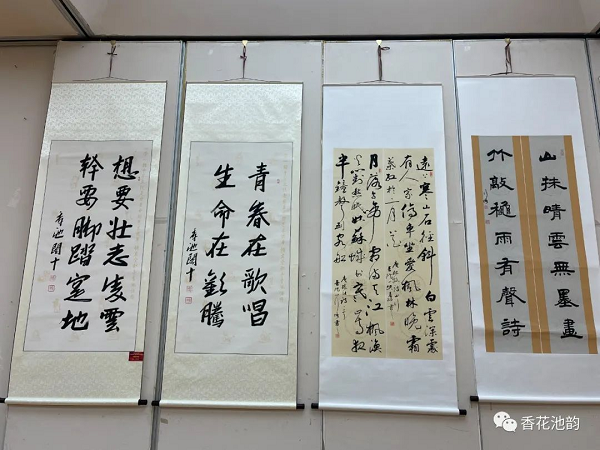 想要壮志凌雲
幹要脚踏寔地
青春在歌唱
生命在歡騰
遠上寒山石徑斜白雲深處
有人家停車坐愛楓林晚霜
葉紅於二月花
月落烏啼霜滿天江楓漁
火對愁眠姑蘇城外寒山寺夜
半鐘聲到客船
山抹晴雲無墨畫
竹敲穐雨有聲詩
香花池韵